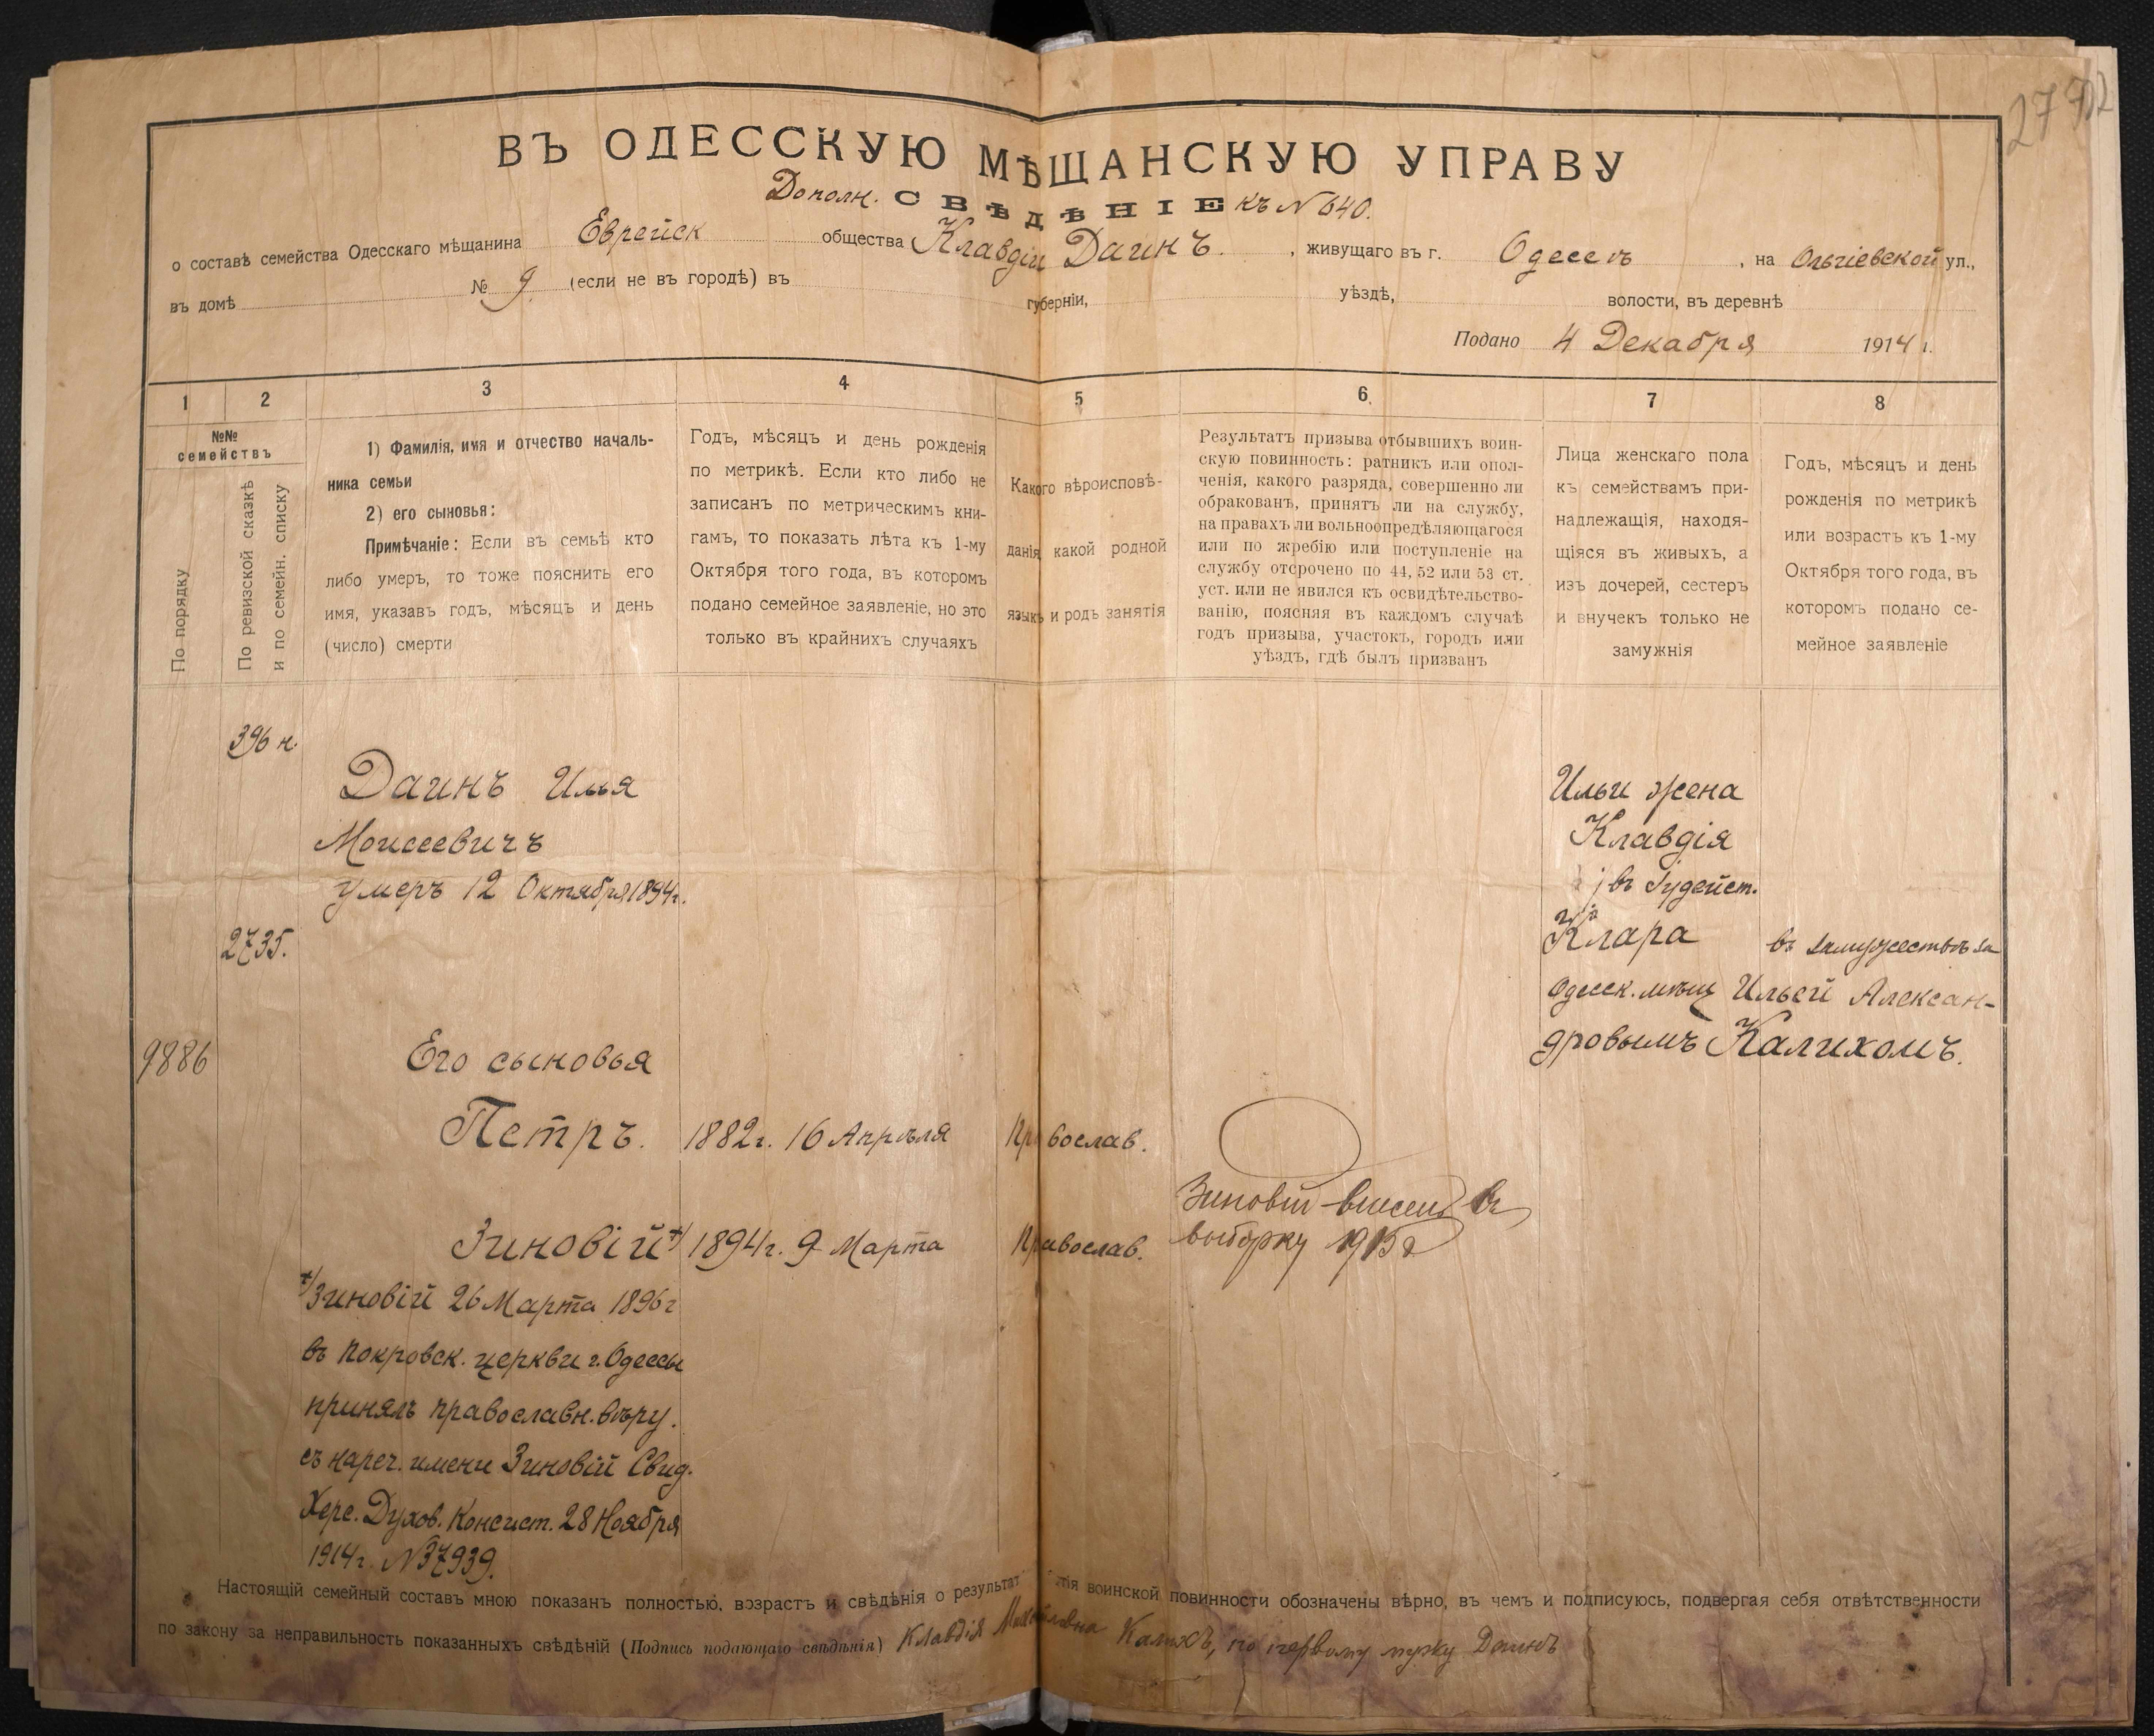 ВЪ ОДЕССКУЮ МѢЩАНСКУЮ УПРАВУ
Дополн. СВѢДѢНІЕ къ № 640.
о составѣ семейства Одесскаго мѣщанина Еврейск общества Клавдіи Даинъ, живущаго въ г. Одессѣ, на Ольгіевской ул.,
въ домѣ № 9 (если не въ городѣ) въ губерніи, уѣздѣ, волости, въ деревнѣ
Подано 4 Декабря 1914 г.
1 2 3 4 5 6 7 8
№№ семействъ
По порядку
По ревизской сказкѣ
и по семейн. списку
1) Фамилія, имя и отчество началь-
ника семьи
2) его сыновья:
Примѣчаніе: Если въ семьѣ кто
либо умеръ, то тоже пояснить его
имя, указавъ годъ, мѣсяцъ и день
(число) смерти
Годъ, мѣсяцъ и день рожденія
по метрикѣ. Если кто либо не
записанъ по метрическимъ кни-
гамъ, то показать лѣта къ 1-му
Октября того года, въ которомъ
подано семейное заявленіе, но это
только въ крайнихъ случаяхъ
Какого вѣроисповѣ-
данія, какой родной
языкъ и родъ занятія
Результатъ призыва отбывшихъ воин-
скую повинность: ратникъ или опол-
ченія, какого разряда, совершенно ли
обракованъ, принятъ ли на службу,
на правахъ ли вольноопредѣляющагося
или по жребію или поступленіе на
службу отсрочено по 44, 52 или 53 ст.
уст. или не явился къ освидѣтельство-
ванію, поясняя въ каждомъ случаѣ
годъ призыва, участокъ, городъ или
уѣздъ, гдѣ былъ призванъ
Лица женскаго пола
къ семействамъ при-
надлежащія, находя-
щіяся въ живыхъ, а
изъ дочерей, сестеръ
и внучекъ только не
замужнія
Годъ, мѣсяцъ и день
рожденія по метрикѣ
или возрастъ къ 1-му
Октября того года, въ
которомъ подано се-
мейное заявленіе
396 н.
Даинъ Илья
Моисеевичъ
умеръ 12 Октября 1894г.
2735.
Ильи жена
Клавдія
въ Іудейст.
Клара въ замужествѣ за
Одесск. мѣщ Ильей Алексан-
дровымъ Калихомъ.
9886
Его сыновья
Петръ. 1882г. 16 Апрѣля Православ.
Зиновій внесенъ въ
выборку 1915г
Зиновій +/ 1894г. 9 Марта Православ.
+/ Зиновій 26 Марта 1896г
въ Покровск. церкви г. Одессы
принялъ православн. вѣру.
съ нареч. имени Зиновій Свид.
Херс. Духов. Консист. 28 Ноября
1914г. № 37939.
Настоящій семейный составъ мною показанъ полностью, возрастъ и свѣдѣнія о результат тія воинской повинности обозначены вѣрно, въ чемъ и подписуюсь, подвергая себя отвѣтственности
по закону за неправильность показанныхъ свѣдѣній (Подпись подающаго свѣдѣнія) Клавдія Михайловна Калихъ, по первому мужу Даинъ